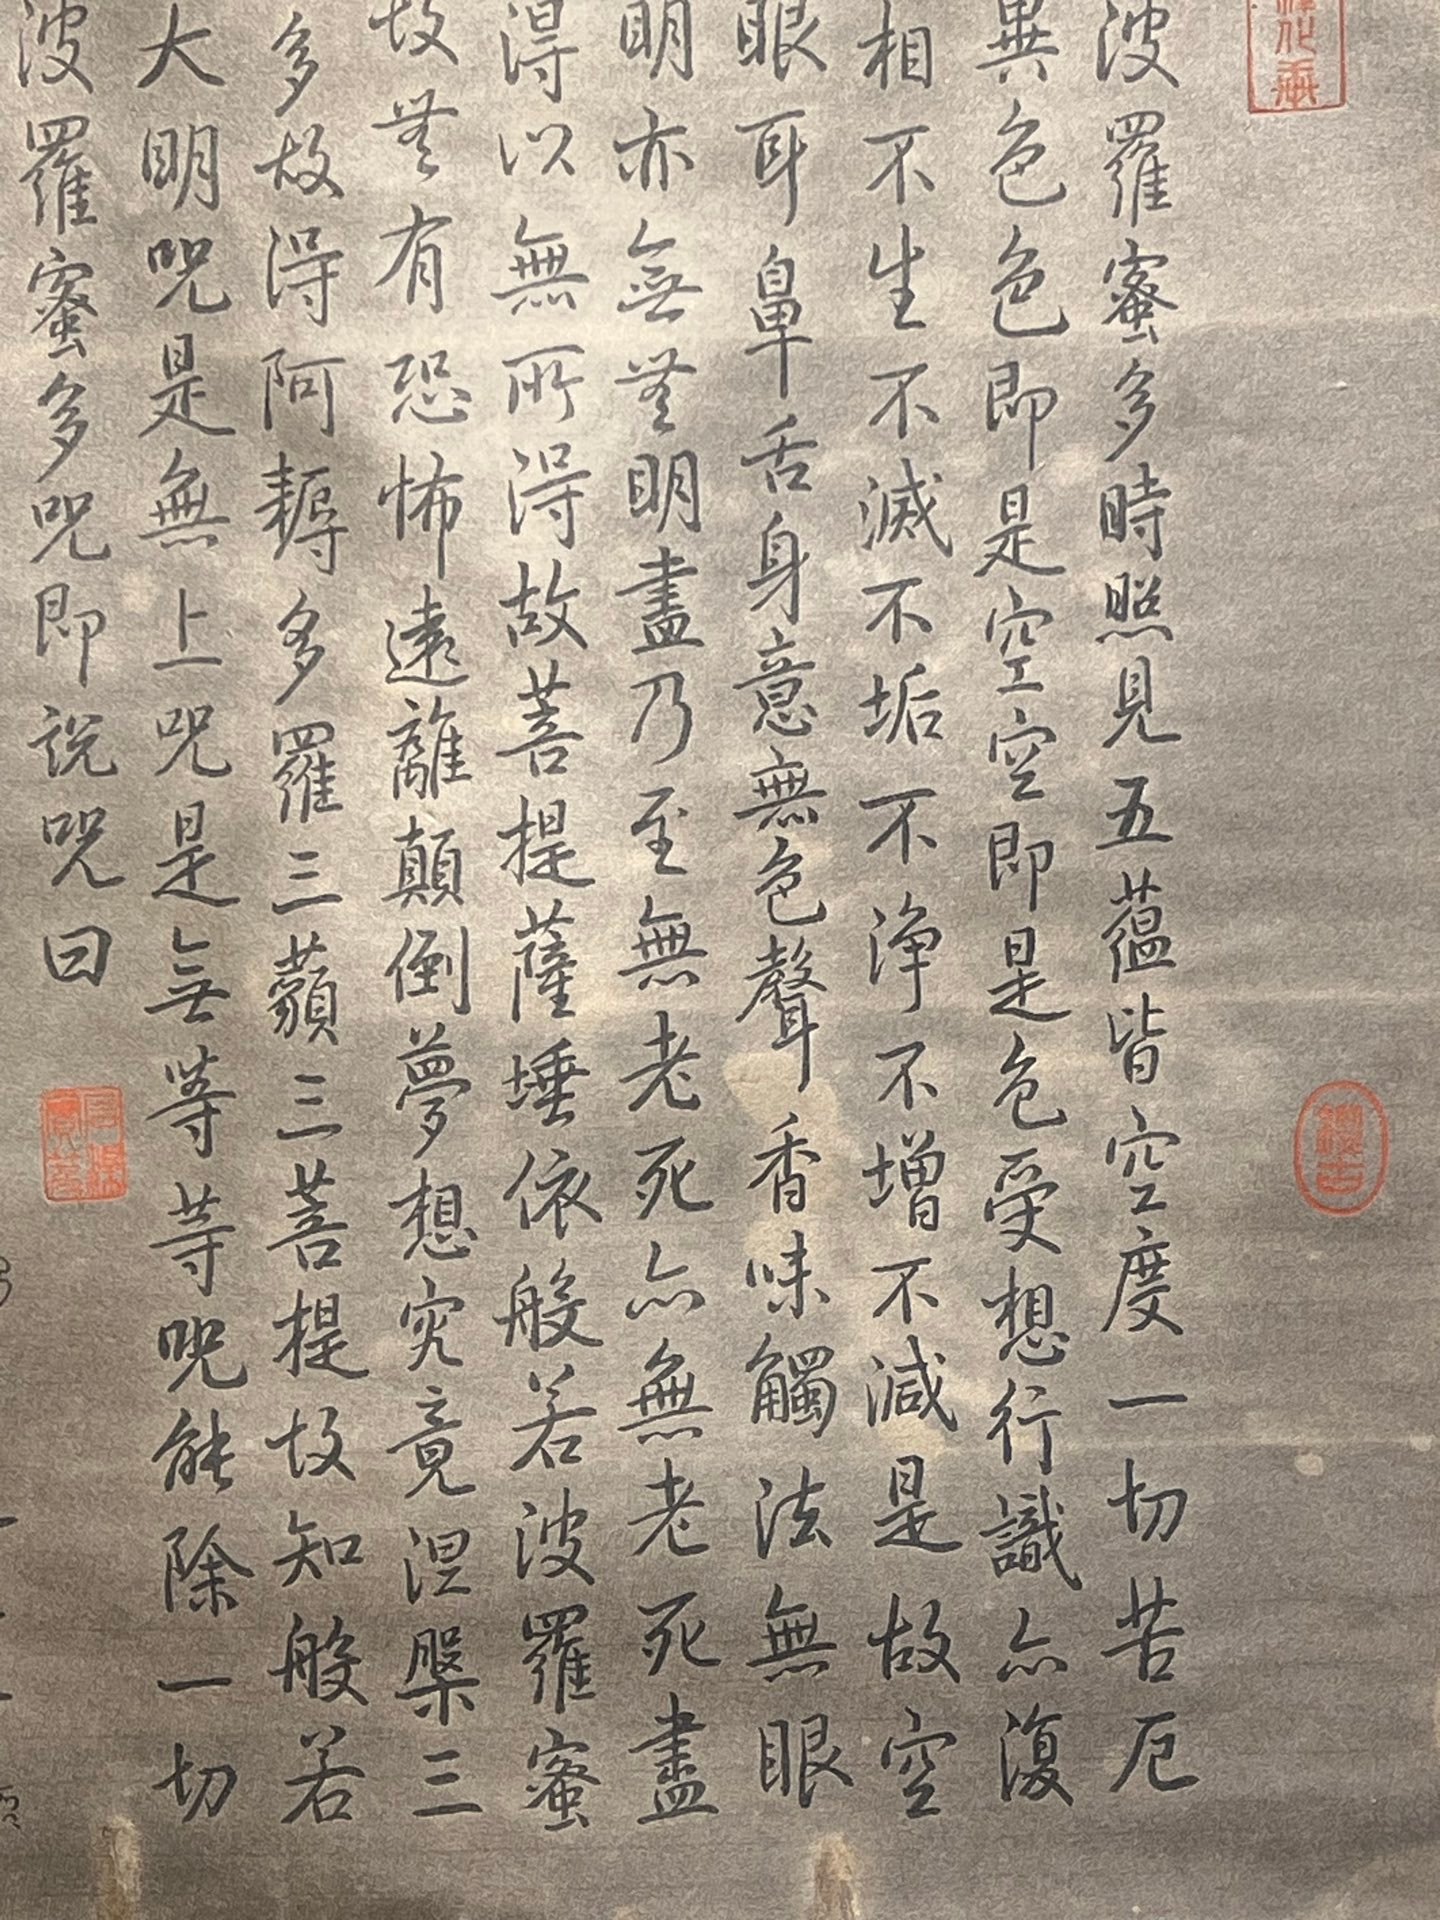 波羅蜜多時照見五蘊皆空度一切苦厄
異色色即是空空即是色受想行識亦復
相不生不滅不垢不淨不增不減是故空
眼耳鼻舌身意無色聲香味觸法無眼
明亦無無明盡乃至無老死亦無老死盡
得以無所得故菩提薩埵依般若波羅蜜
故無有恐怖遠離顛倒夢想究竟涅槃三
多故得阿耨多羅三藐三菩提故知般若
大明咒是無上咒是無等等咒能除一切
波羅蜜多咒即說咒曰